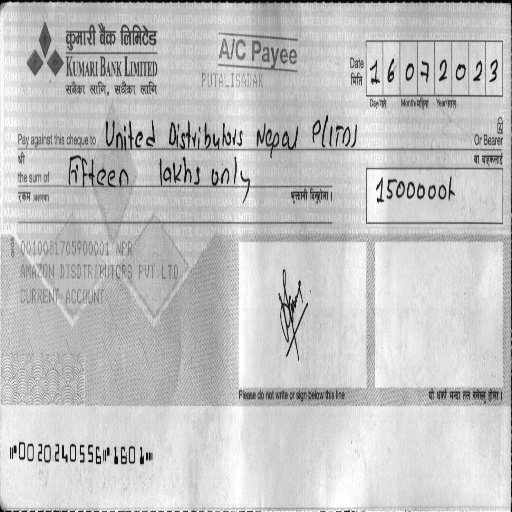 कुमारी बैंक लिमिटेड
KUMARI BANK LIMITED
सबैका लागि, सधैंका लागि
A/C Payee
PUTALISADAK
Date 16072023
मिति
Day/गते Month/महिना Year/साल
Pay against this cheque to United Distributors Nepal P(LTD)
Or Bearer
श्री
वा वाहकलाई
the sum of Fifteen lakhs only
रकम अक्षरूपमा
भुक्तानी दिनुहोला।
1500000/-
0010081705900001 NPR
AMAZON DISDTRIBUTORS PVT LTD
CURRENT ACCOUNT
Please do not write or sign below this line
यो धर्का भन्दा तल नलेख्नु होला।
⑈0020240556⑈1801⑈